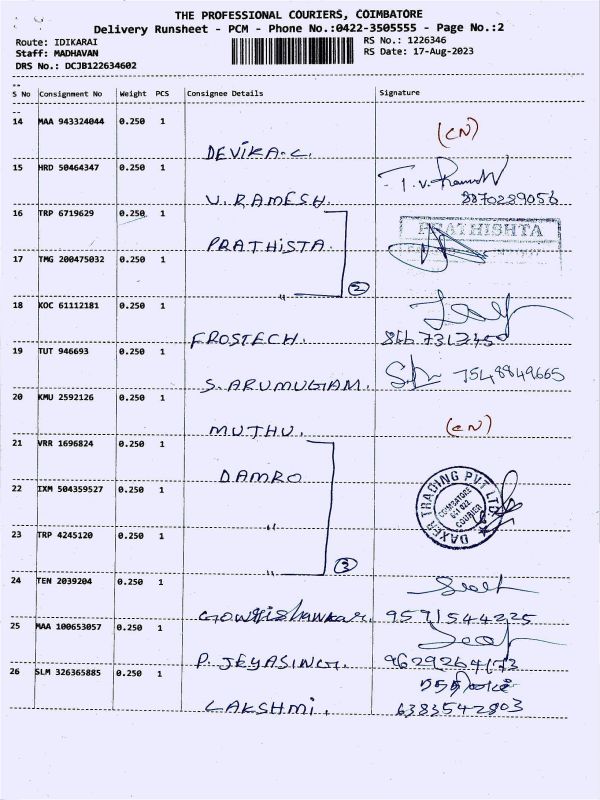 THE PROFESSIONAL COURIERS, COIMBATORE
Delivery Runsheet - PCM - Phone No.:0422-3505555 - Page No.:2
Route: IDIKARAI RS No.: 1226346
Staff: MADHAVAN RS Date: 17-Aug-2023
DRS No.: DCJB122634602
S No Consignment No Weight PCS Consignee Details Signature
14 MAA 943324044 0.250 1
DEVIKA.C. (CN)
15 HRD 50464347 0.250 1
V. RAMESH. T.V. 8870289056
16 TRP 6719629 0.250 1
PRATHISTA. PRATHISHTA
17 TMG 200475032 0.250 1
〃 2
18 KOC 61112181 0.250 1
FROSTECH.
19 TUT 946693 0.250 1
S. ARUMUGAM. 7548849665
20 KMU 2592126 0.250 1
MUTHU. (CN)
21 VRR 1696824 0.250 1
DAMRO DAXER TRADING PVT LTD
COIMBATORE
641 022
COURIER
22 IXM 504359527 0.250 1
〃
23 TRP 4245120 0.250 1
〃 3
24 TEN 2039204 0.250 1
Gowrishankar. 9591544225
25 MAA 100653057 0.250 1
P. JEYASINGH. 9629264173
26 SLM 326365885 0.250 1
LAKSHMI. 6383542803